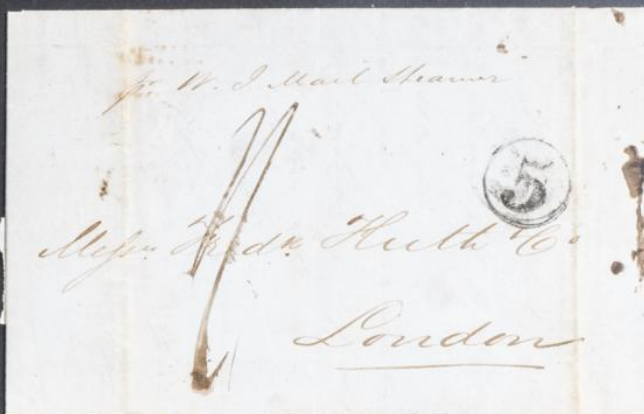 pr. W. I Mail Steamer
5
Messrs Fredk Huth Co
London